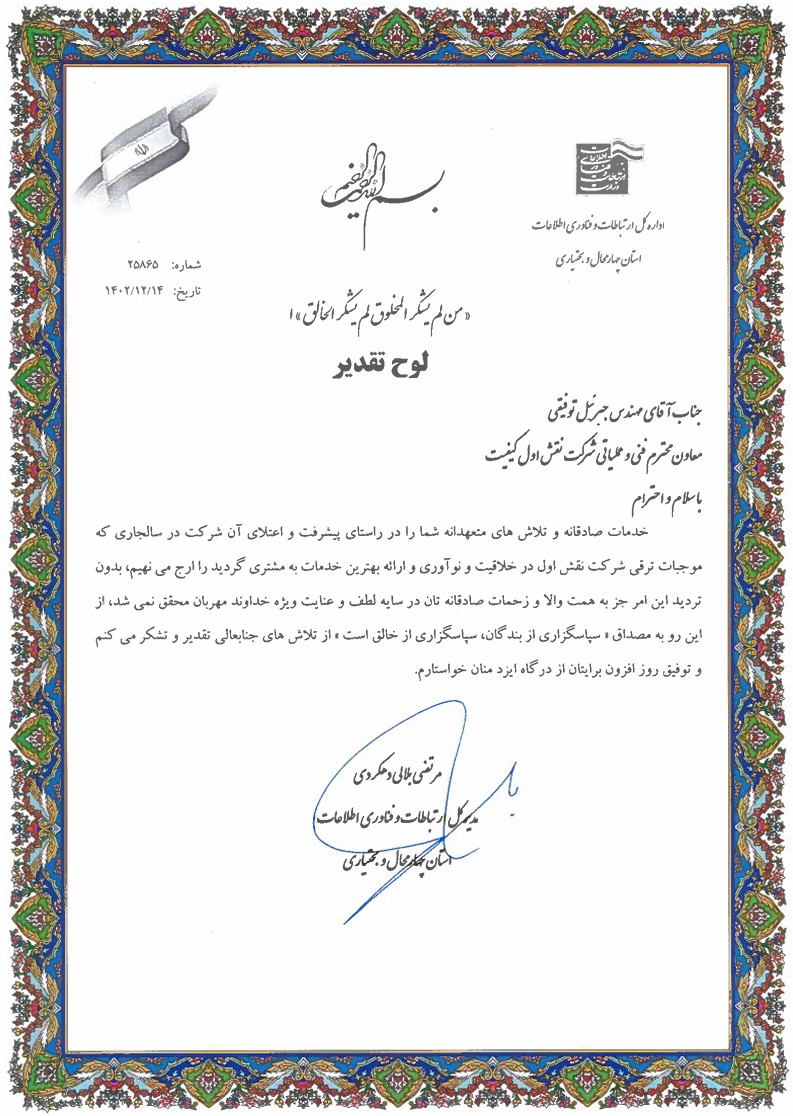 بسم الله الرحمن الرحیم
وزارت ارتباطات و فناوری اطلاعات
اداره کل ارتباطات و فناوری اطلاعات
استان چهارمحال و بختیاری
شماره: ۲۵۸۶۵
تاریخ: ۱۴۰۲/۱۲/۱۴
«من لم یشکر المخلوق لم یشکر الخالق» ا
لوح تقدیر
جناب آقای مهندس جبرئیل توفیقی
معاون محترم فنی و عملیاتی شرکت نقش اول کیفیت
با سلام و احترام
خدمات صادقانه و تلاش های متعهدانه شما را در راستای پیشرفت و اعتلای آن شرکت در سالجاری که
موجبات ترقی شرکت نقش اول در خلاقیت و نوآوری و ارائه بهترین خدمات به مشتری گردید را ارج می نهیم، بدون
تردید این امر جز به همت والا و زحمات صادقانه تان در سایه لطف و عنایت ویژه خداوند مهربان محقق نمی شد، از
این رو به مصداق « سپاسگزاری از بندگان، سپاسگزاری از خالق است » از تلاش های جنابعالی تقدیر و تشکر می کنم
و توفیق روز افزون برایتان از درگاه ایزد منان خواستارم.
مرتضی بلالی دهکردی
مدیر کل ارتباطات و فناوری اطلاعات
استان چهارمحال و بختیاری